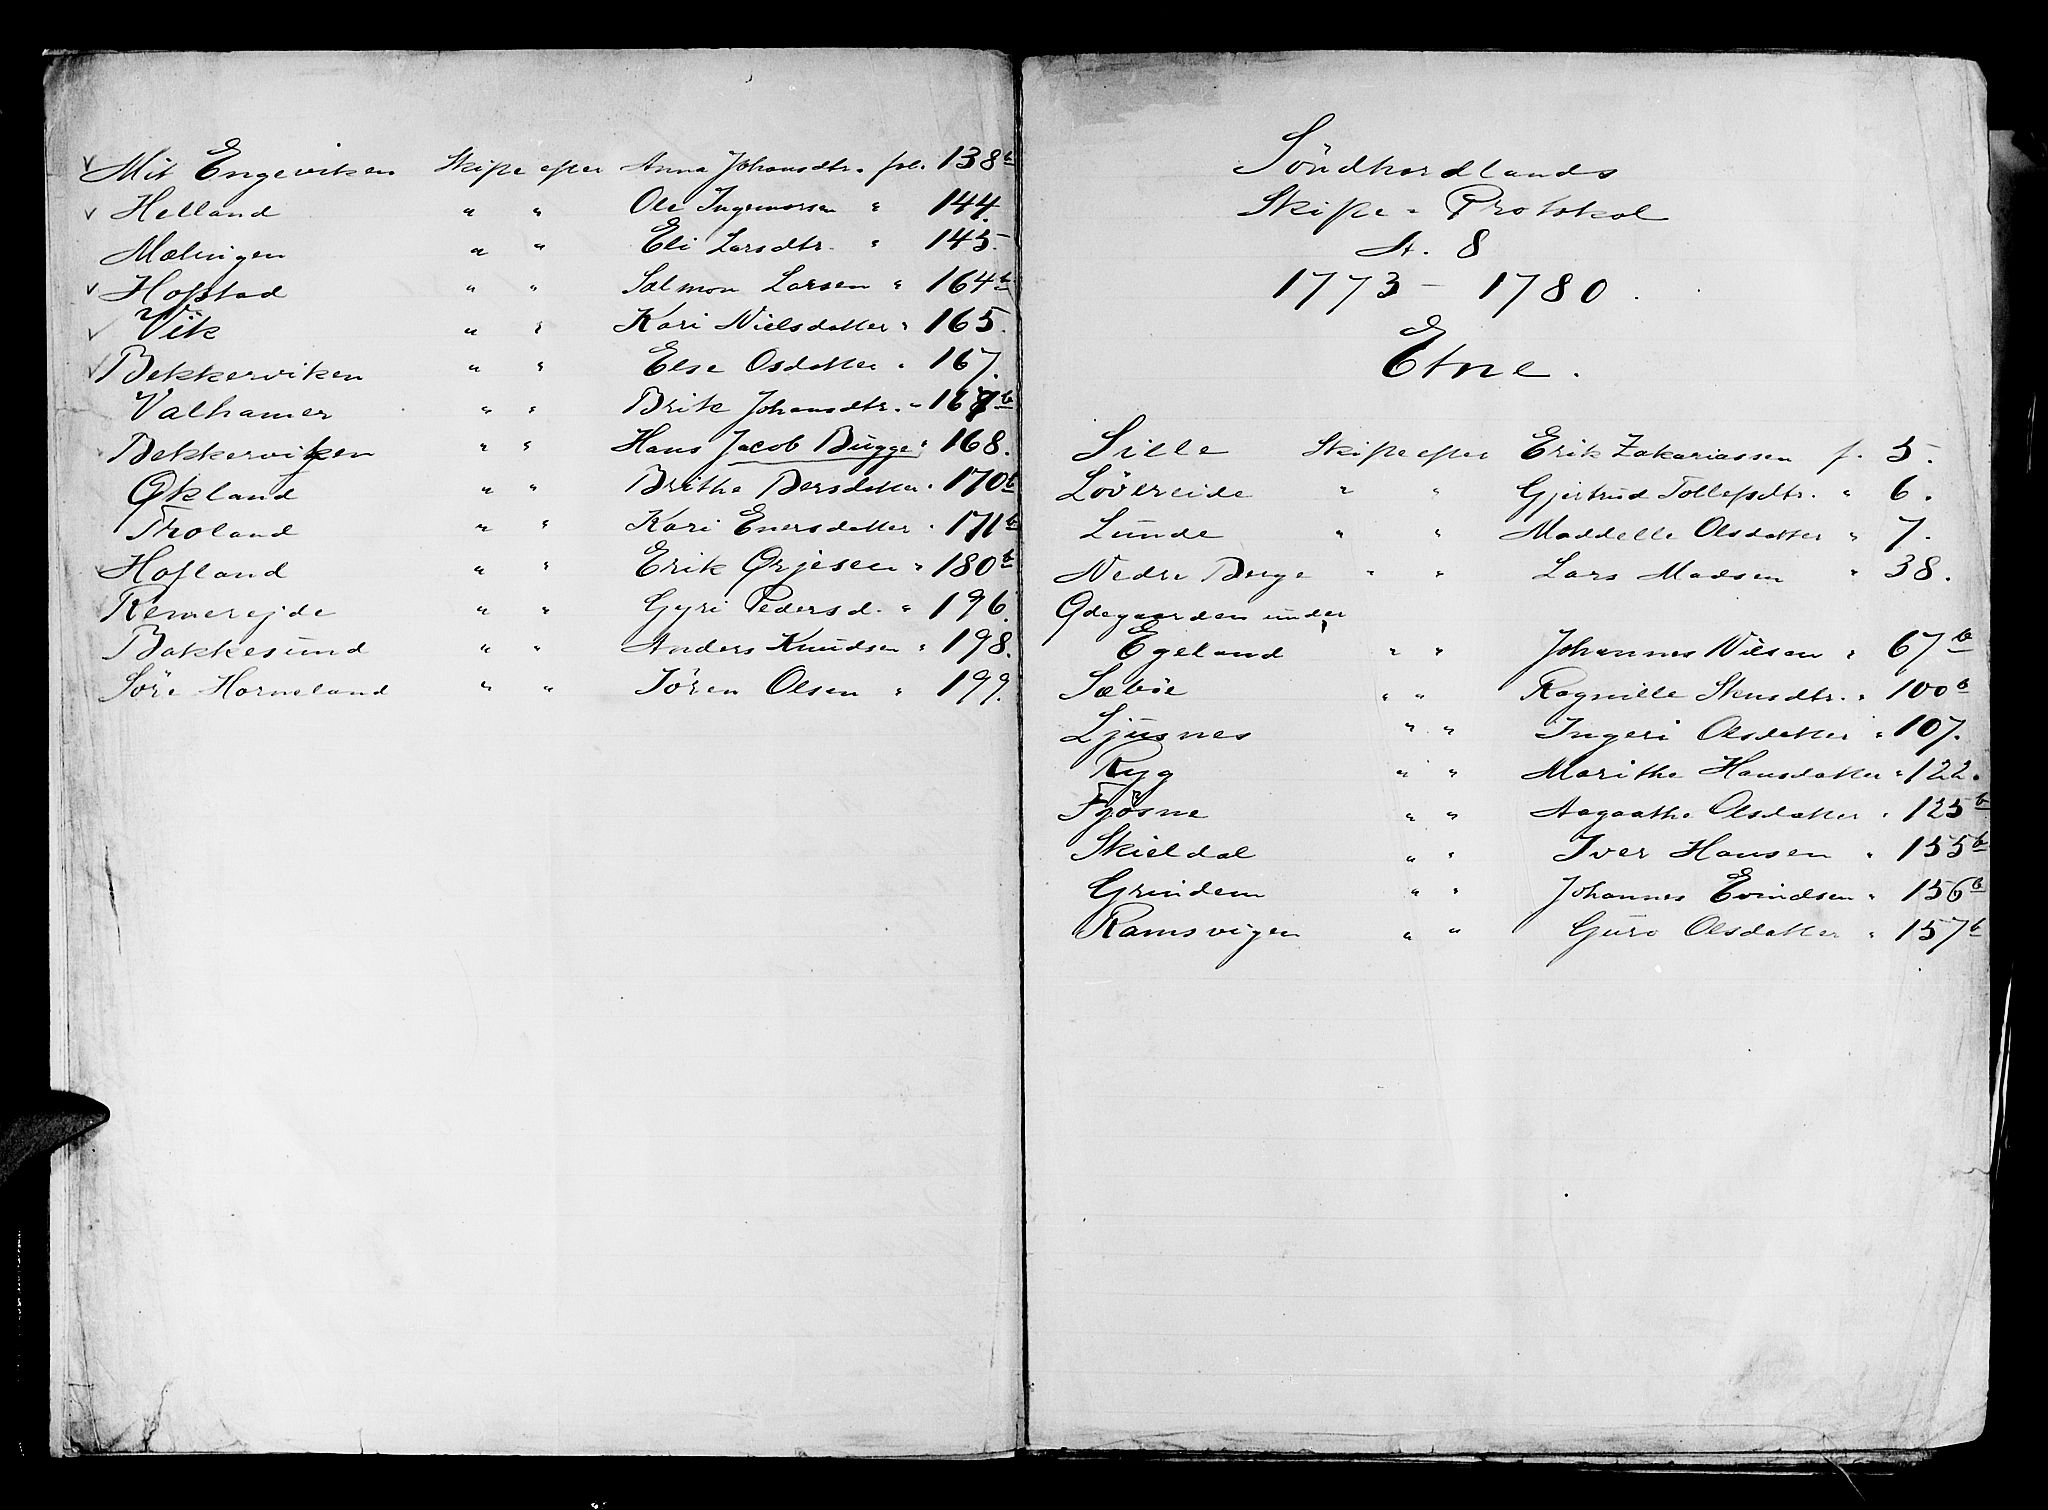 Mit Engeviken Skifte efter Anna Johansdtr. fol. 138b
Helland " " Ole Ingemarsen " 144.
Mælingen " " Eli Larsdtr. " 145.
Hofstad " " Salmon Larsen " 164b
Vik " " Kari Nielsdatter " 165.
Bekkerviken " " Else Osdatter " 167.
Valhamer " " Brite Johansdtr. " 167b
Bekkerviken " " Hans Jacob Bugge " 168.
Økland " " Brithe Bersdatter " 170b
Troland " " Kari Enersdatter " 171b
Hofland " " Erik Ørjesen " 180b
Remerejde " " Gyri Pedersd. " 196.
Bakkesund " " Anders Knudsen " 198.
Söre Horneland " " Jören Olsen " 199.
Söndhordlands
Skifte-Protokol
A. 8
1773 - 1780.
Etne.
Sille Skifte efter Erik Zakariassen f. 5.
Lövereide " " Gjertrud Tollefsdtr. " 6.
Lunde " " Maddelle Olsdatter " 7.
Nedre Berge " " Lars Madsen " 38.
Ødegaarden under
Egeland " " Johannes Nilsen " 67b
Sæböe " " Ragnille Stensdtr. " 100b
Ljusnes " " Ingeri Olsdatter " 107.
Ryg " " Marithe Hansdatter " 122.
Fjösne " " Aagaathe Olsdatter " 125b
Skieldal " " Iver Hansen " 155b
Grindem " " Johannes Evindsen " 156b
Ramsvigen " " Guro Olsdatter " 157b